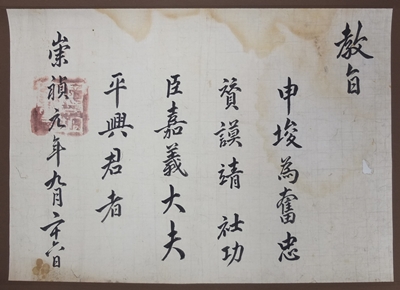 教旨
申埈為奮忠
贊謨靖社功
臣嘉義大夫
平興君者
崇禎元年九月二十六日